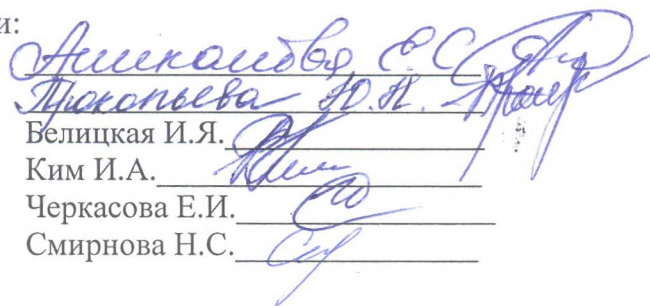 и:
Е.С.
Прокопьева Ю.Н.
Белицкая И.Я.
Ким И.А.
Черкасова Е.И.
Смирнова Н.С.